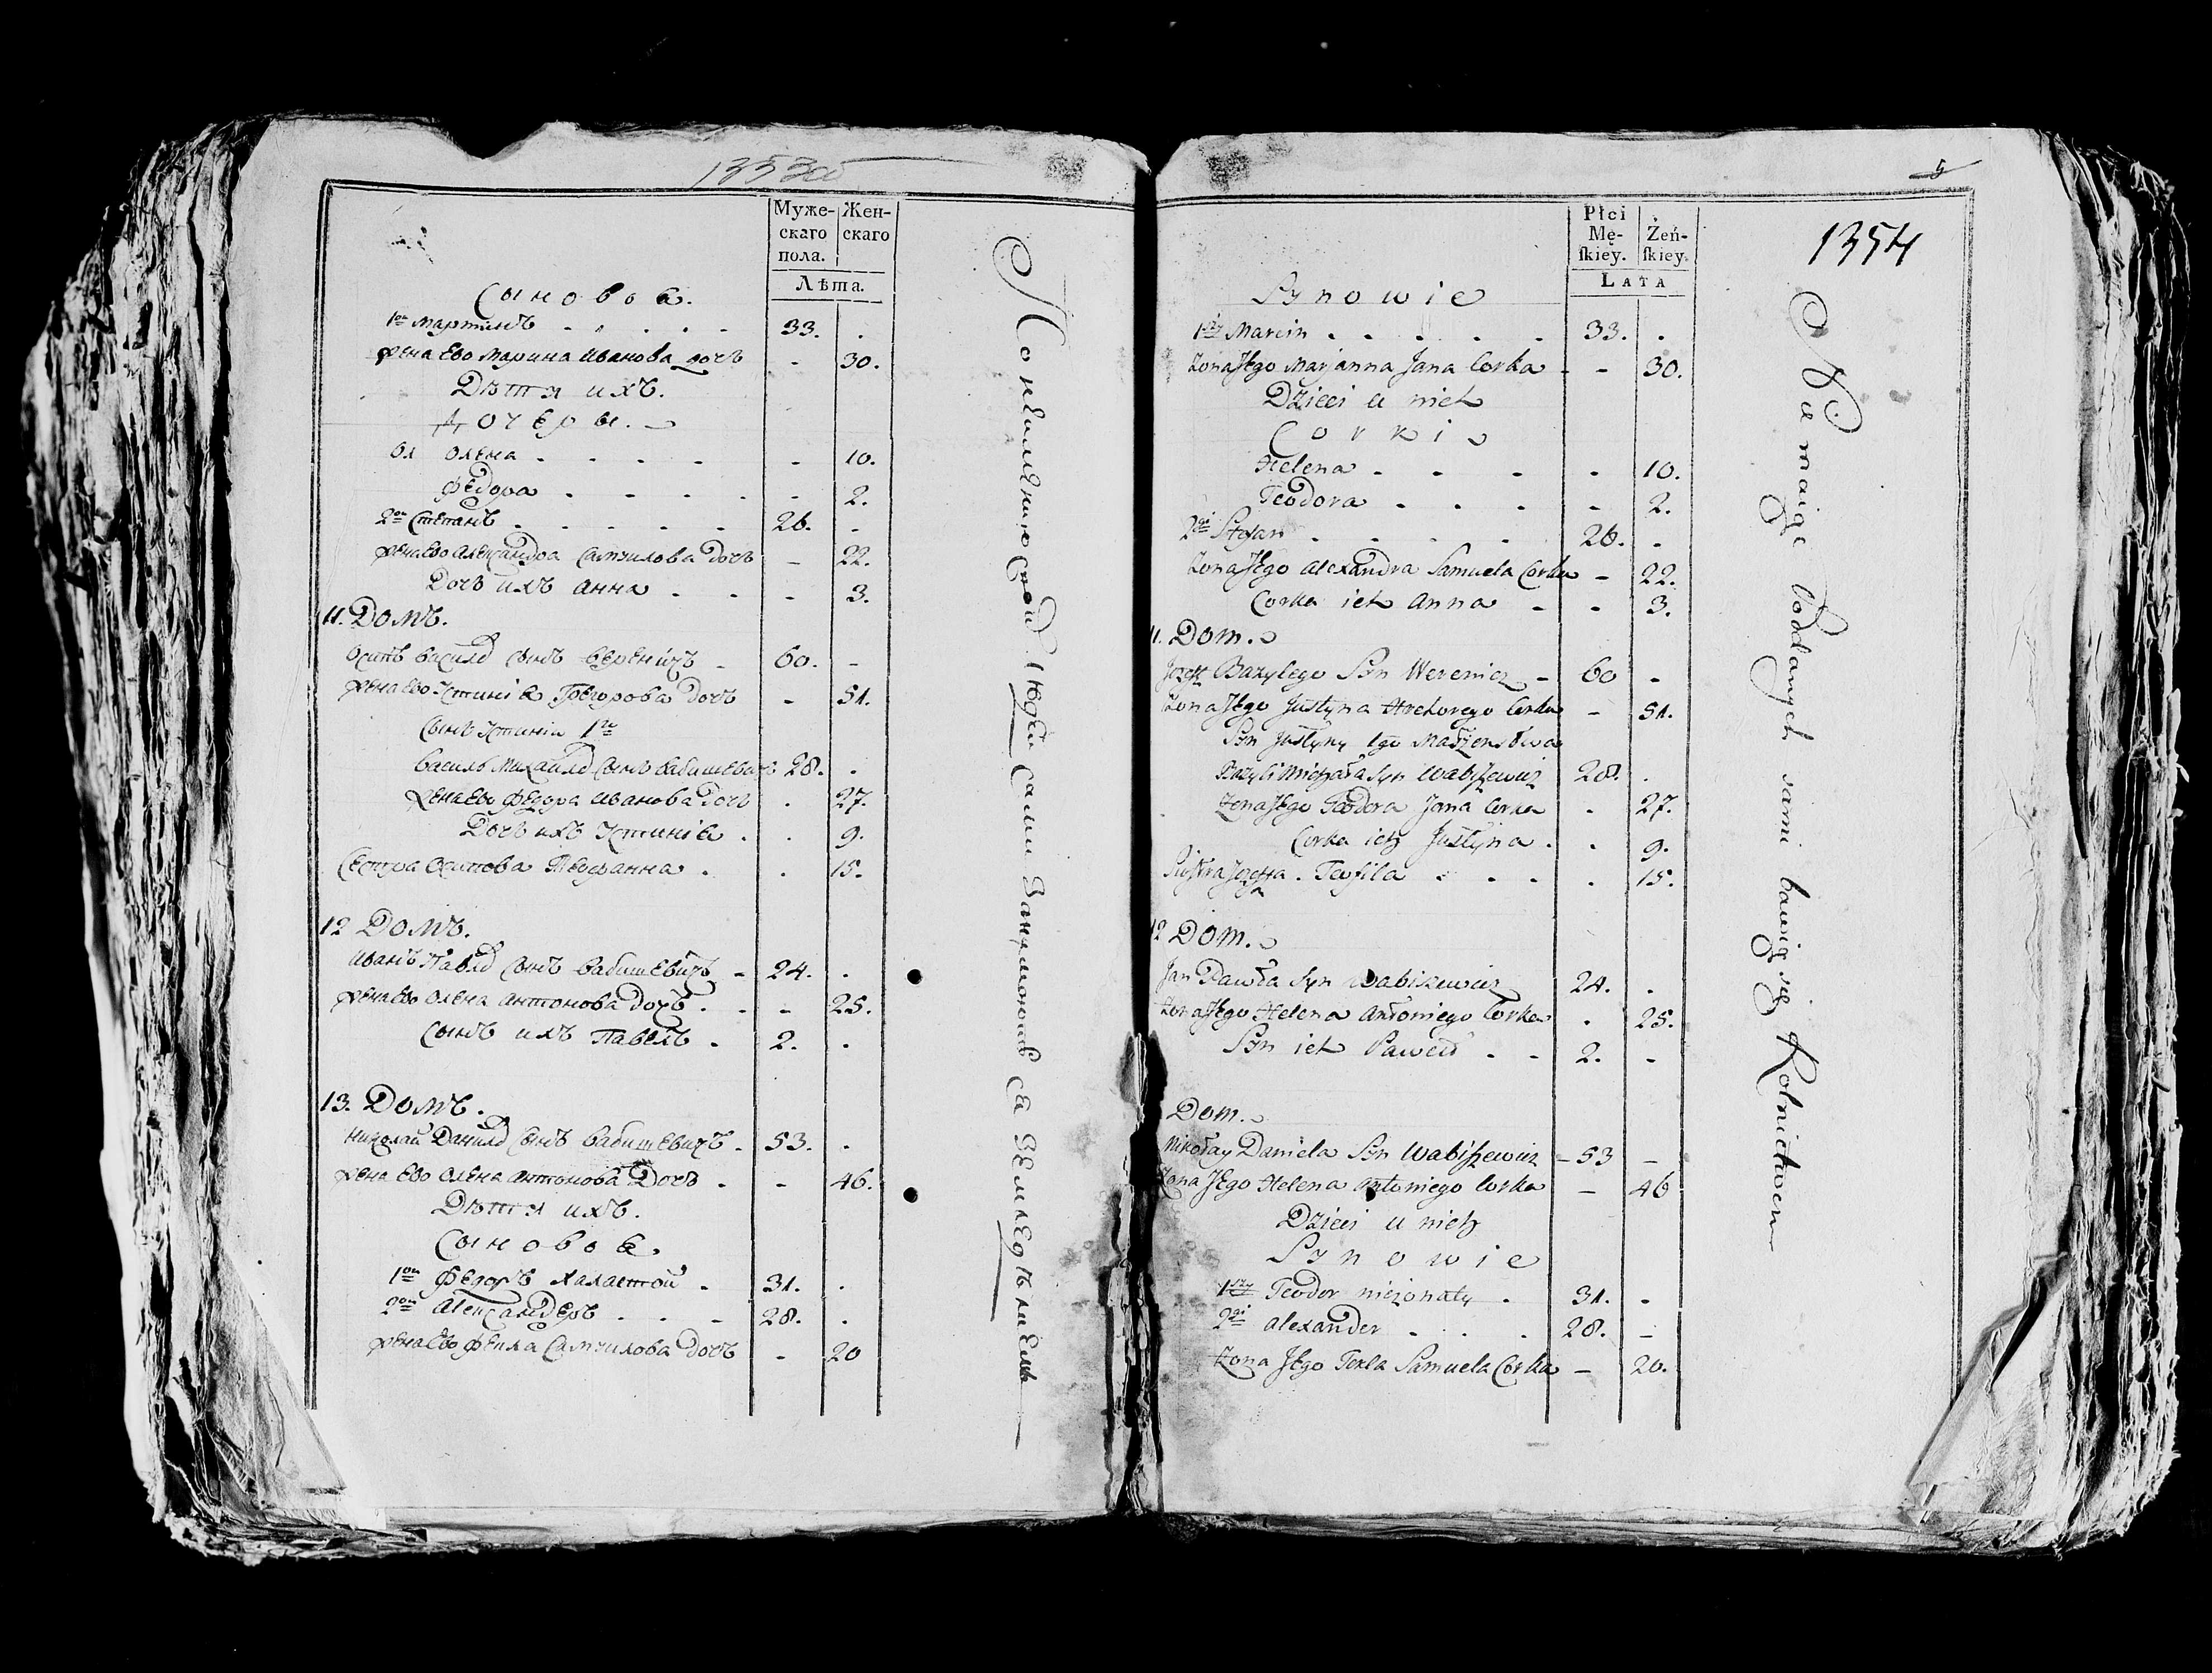 1353об
Муже-
скаго
пола.
Жен-
скаго
Лѣта.
Сыновья.
1ой Мартинъ 33.
Жена Его Марина Иванова дочь 30.
Дѣти ихъ.
Дочеры.
Олена 10.
Федора 2.
2ой Степанъ 26.
Жена Его Александра Самуилова дочь 22.
Дочь ихъ Анна 3.
11. Домъ.
Осипъ Василя Сынъ Вереничъ 60.
Жена Его Устинія Григорова дочь 51.
Сынъ Устиніи 1го
Василь Михайла Сынъ Вабишевичъ 28.
Жена Его Федора Иванова дочь 27.
Дочь ихъ Устинія 9.
Сестра Осипова 15.
12 Домъ.
Иванъ Павла Сынъ Вабишевичъ 24.
Жена Его Олена Антонова дочь 25.
Сынъ ихъ Павелъ 2.
13. Домъ.
Николай Данила Сынъ Вабишевичъ 53.
Жена Его Олена Антонова дочь 46.
Дѣти ихъ.
Сыновья.
1ой Федоръ халастой 31.
2ой Александеръ 28.
Жена Его Фекла Самуилова дочь 20
По неимению своїхъ людей сами занимаються земледѣлиемъ
5
1354
Płci
Mę-
ſkiey.
Żeń-
ſkiey.
LATA
Synowie
1szy Marcin 33.
Żona Jego Marjanna Jana Corka 30.
Dzieci u nich
Corki
Helena 10.
Teodora 2.
2gi Stefan 26.
Żona Jego Alexandra Samuela Corka 22.
Corka ich Anna 3.
11. Dom.
Jozef Bazylego Syn Werenicz 60
Żona Jego Justyna Corka 51.
Syn Justyny 1go Małżenstwa
Bazyli Michała Syn Wabiszewicz 28.
Żona Jego Teodora Jana Corka 27.
Corka ich Justyna 9.
Siostra Jozefa Teofila 15.
12 Dom.
Jan Pawła Syn Wabiszewicz 24.
Żona Jego Helena Antoniego Corka 25.
Syn ich Paweł 2.
Dom.
Mikołay Daniela Syn Wabiszewicz 53
Żona Jego Helena Antoniego Corka 46
Dzieci u nich
Synowie
1szy Teodor nieżonaty 31.
2gi Alexander 28.
Żona Jego Tekla Samuela Corka 20.
Nie maiąc Poddanych sami bawią się Rolnictwem